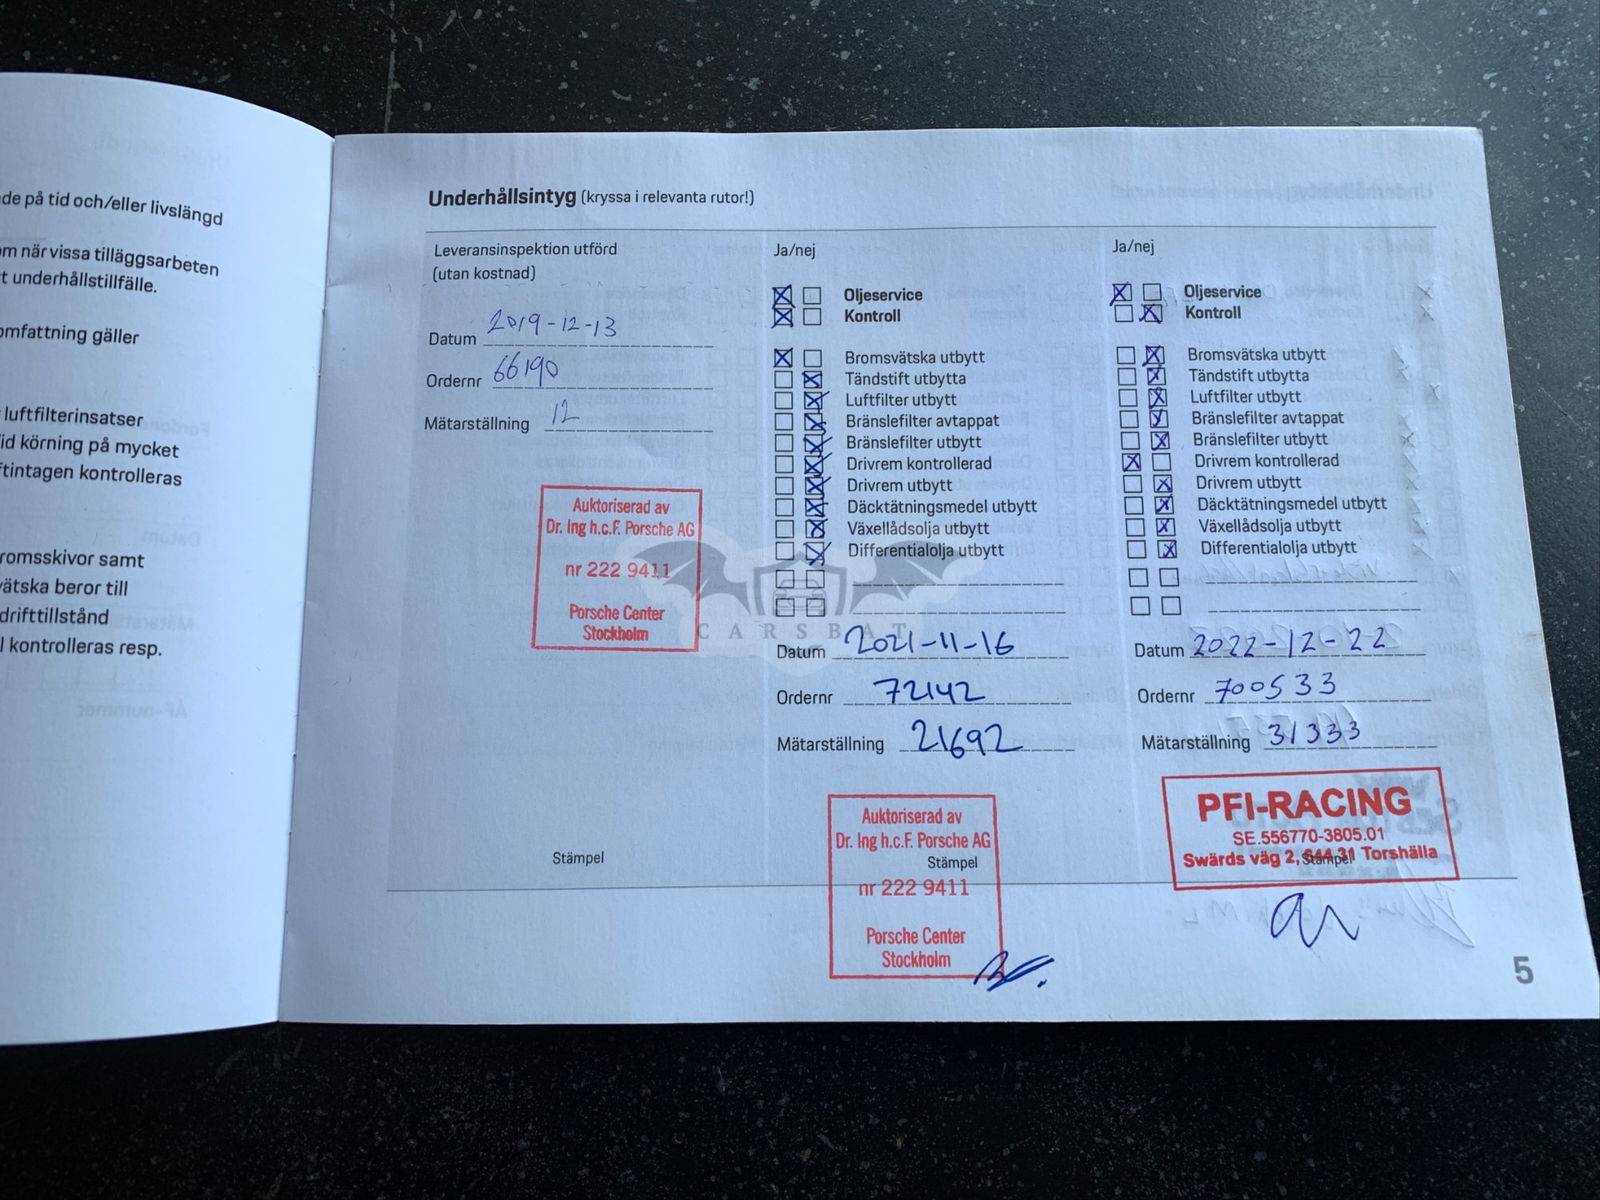 de på tid och/eller livslängd
om när vissa tilläggsarbeten
t underhållstillfälle.
omfattning gäller
luftfilterinsatser
id körning på mycket
ftintagen kontrolleras
romsskivor samt
vätska beror till
drifttillstånd
l kontrolleras resp.
Underhållsintyg (kryssa i relevanta rutor!)
Leveransinspektion utförd
(utan kostnad)
Datum 2019-12-13
Ordernr 66190
Mätarställning 12
Auktoriserad av
Dr. Ing h.c.F. Porsche AG
nr 222 9411
Porsche Center
Stockholm
Stämpel
Ja/nej
Oljeservice
Kontroll
Bromsvätska utbytt
Tändstift utbytta
Luftfilter utbytt
Bränslefilter avtappat
Bränslefilter utbytt
Drivrem kontrollerad
Drivrem utbytt
Däcktätningsmedel utbytt
Växellådsolja utbytt
Differentialolja utbytt
CARSBAT
Datum 2021-11-16
Ordernr 72142
Mätarställning 21692
Auktoriserad av
Dr. Ing h.c.F. Porsche AG
Stämpel
nr 222 9411
Porsche Center
Stockholm
Ja/nej
Oljeservice
Kontroll
Bromsvätska utbytt
Tändstift utbytta
Luftfilter utbytt
Bränslefilter avtappat
Bränslefilter utbytt
Drivrem kontrollerad
Drivrem utbytt
Däcktätningsmedel utbytt
Växellådsolja utbytt
Differentialolja utbytt
Datum 2022-12-22
Ordernr 700533
Mätarställning 31333
PFI-RACING
SE.556770-3805.01
Swärds väg 2, 644 31 Torshälla
Stämpel
5